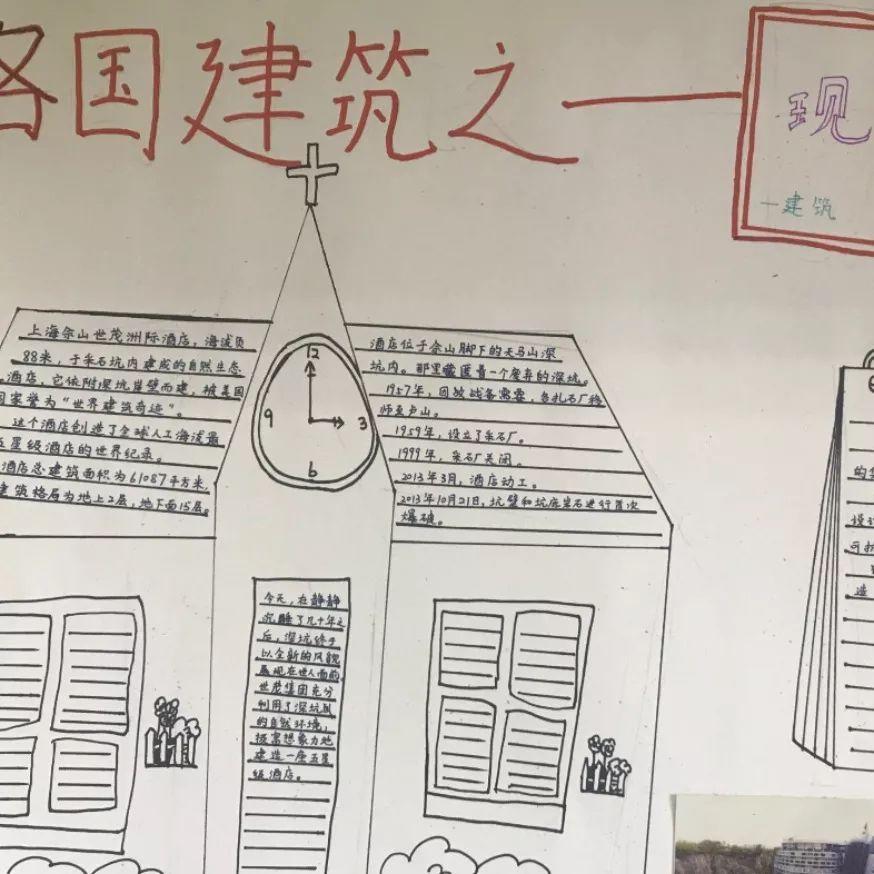 各国建筑之
现
一建筑
上海佘山世茂洲际酒店，海拔负
88米，于采石坑内建成的自然生态
酒店，它依附深坑崖壁而建，被美国
国家誉为“世界建筑奇迹”。
这个酒店创造了全球人工海拔最
五星级酒店的世界纪录。
酒店总建筑面积为61087平方米，
建筑格局为地上2层，地下面15层。
12
9
3
6
酒店位于佘山脚下的天马山深
坑内。那里藏匿着一个废弃的深坑。
1957年，因被战备需要，
师至卢山。
1959年，设立了采石厂。
1999年，采石厂关闭。
2013年3月，酒店动工。
2013年10月21日，坑壁和坑底岩石进行首次
爆破。
今天，在静静
沉睡了几十年之
后，深坑终于
以全新的风貌
展现在世人面前
世茂集团充分
利用了深坑
的自然环境，
极富想象力地
建造一座五星
级酒店。
的
设
可
造